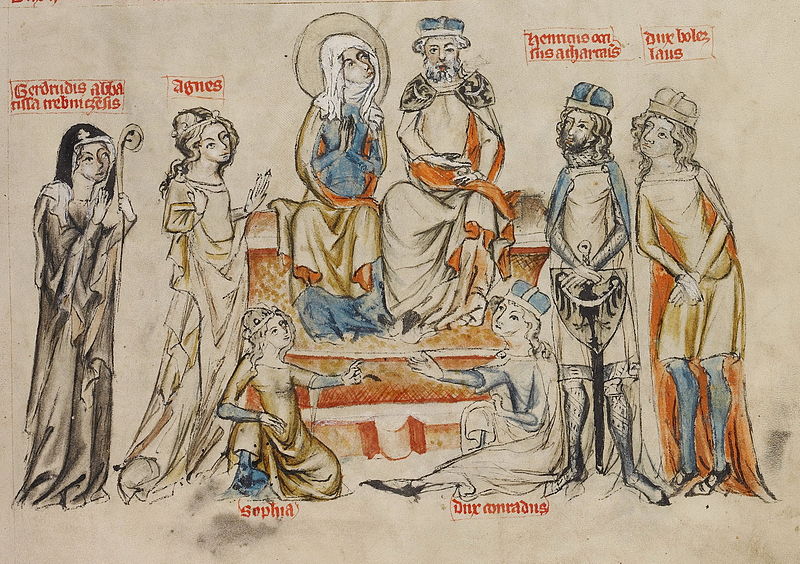 Gerdrudis abba
tissa trebniczensis
Agnes
Henricus occi
sus a thartaris
dux bolez
laus
Sophia
dux conradus